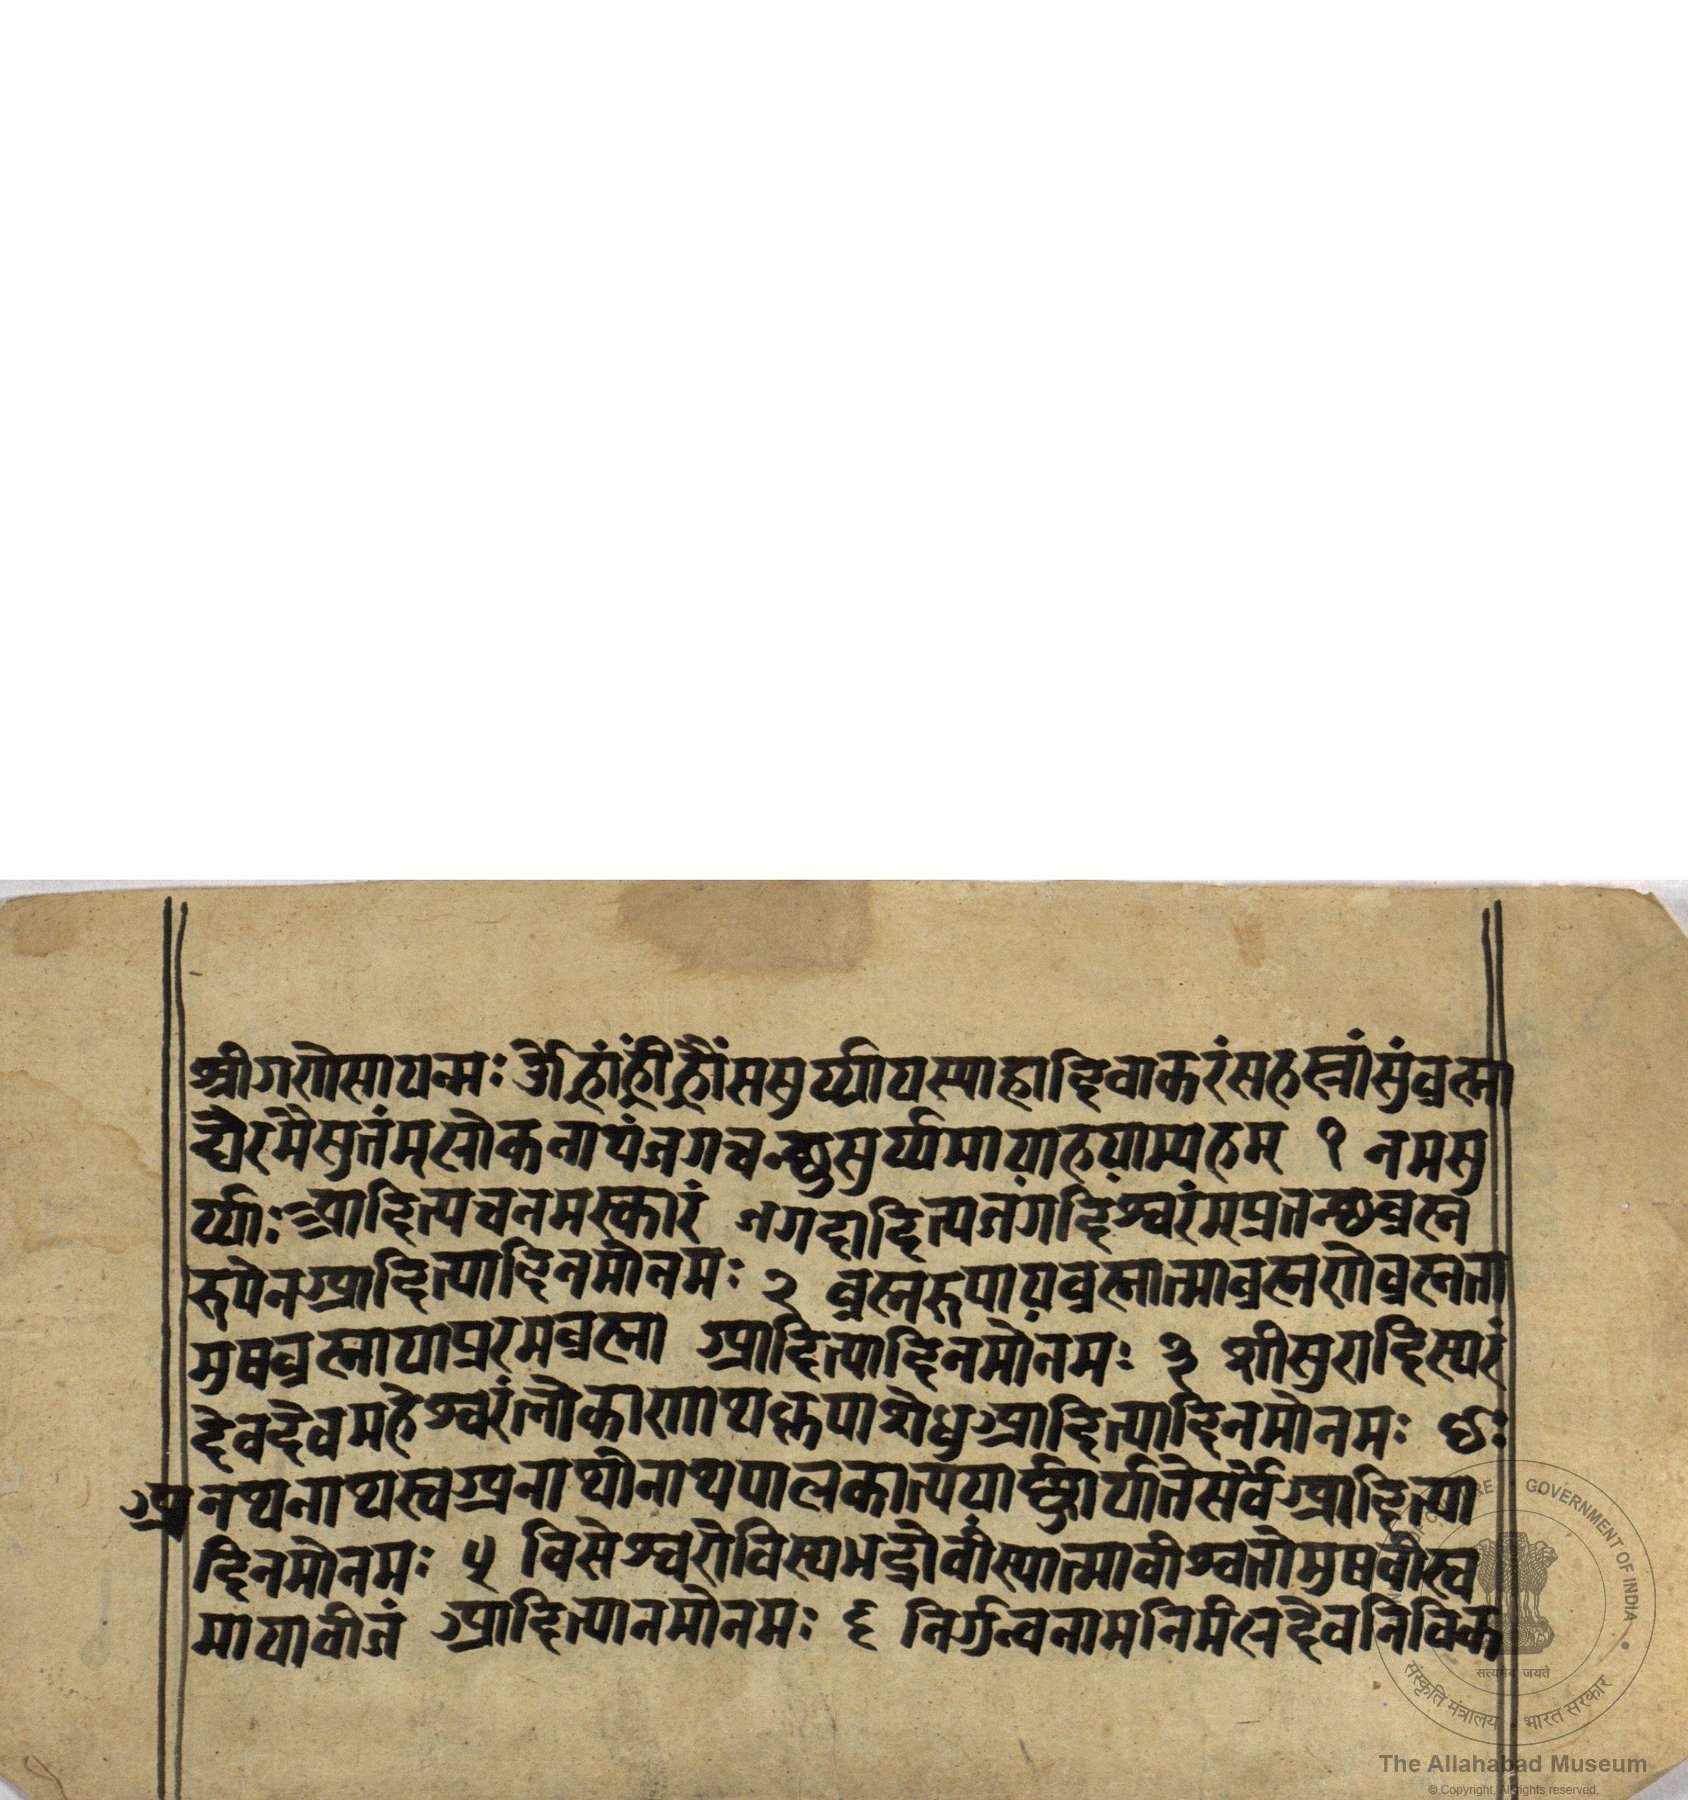 श्रीगणेसायन्मः ॐ ह्रां ह्रीं ह्रौं स सुर्य्यायस्वाहा दिवाकरं सहस्त्रांसुं ब्रह्मा
द्यैरमैसुतंम् लोकनाथं जगचन्छुसुर्य्यमावाहयाम्यहम् १ नमसु
र्य्याः आदित्यचनमस्कारं जगदादित्यजगदिश्वरंम प्रतन्छब्रह्म
रुपेनआदित्यादिनमोनमः २ ब्रह्मरुपायब्रह्मात्माब्रह्मणोब्रह्मता
मुषब्रह्मायाप्ररमब्रह्मा आदित्यादिनमोनमः ३ श्रीसुरादिस्यरं
देवदेवमहेश्वरंलोकाराणाथ आदित्यादिनमोनमः
अनथनाथस्वअनाथोनाथपालका सर्वेआदित्या
दिनमोनमः ५ विसेश्वरोविस्यभद्रोवीस्यात्मावीश्वतोमुषवीस्व
मायावीजं आदित्यानमोनमः ६ निर्गुन्वनामनिर्मलदेवनिविक
GOVERNMENT OF INDIA
सत्यमेव जयते
संस्कृति मंत्रालय भारत सरकार
The Allahabad Museum
© Copyright, All rights reserved.